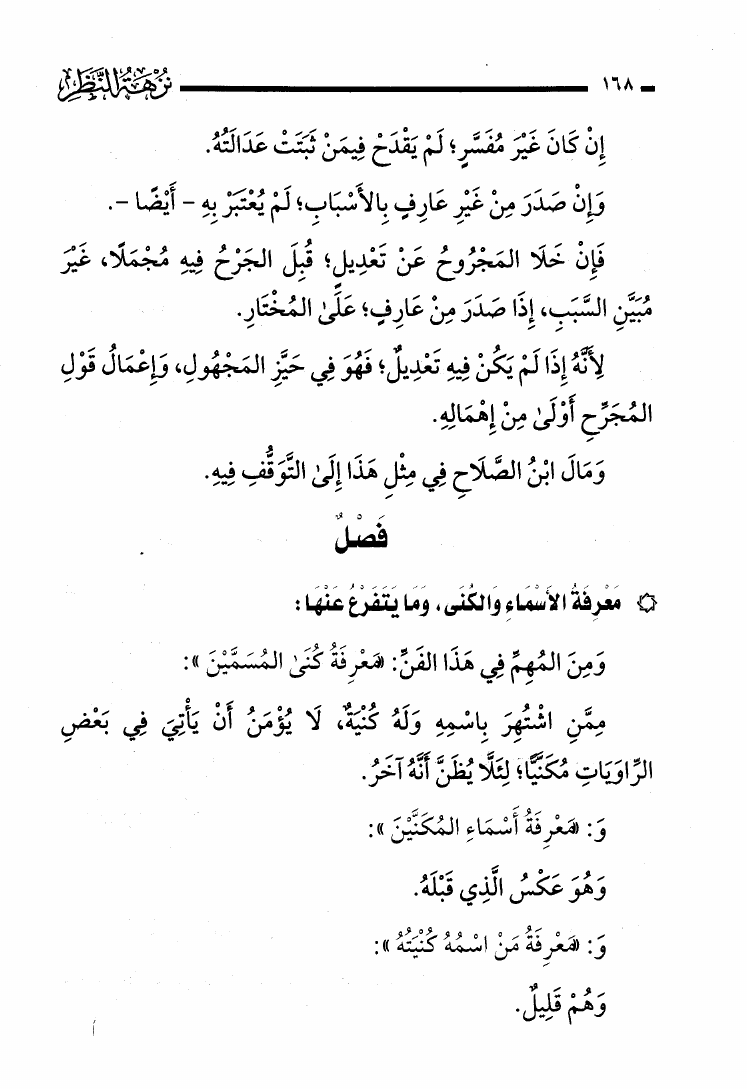 ١٦٨ نُزْهَةُ النَّظَرِ
إِنْ كَانَ غَيْرَ مُفَسَّرٍ؛ لَمْ يَقْدَحْ فِيمَنْ ثَبَتَتْ عَدَالَتُهُ.
وَإِنْ صَدَرَ مِنْ غَيْرِ عَارِفٍ بِالأَسْبَابِ؛ لَمْ يُعْتَبَرْ بِهِ - أَيْضًا -.
فَإِنْ خَلَا المَجْرُوحُ عَنْ تَعْدِيلٍ؛ قُبِلَ الجَرْحُ فِيهِ مُجْمَلًا، غَيْرَ
مُبَيَّنِ السَّبَبِ، إِذَا صَدَرَ مِنْ عَارِفٍ؛ عَلَى المُخْتَارِ.
لِأَنَّهُ إِذَا لَمْ يَكُنْ فِيهِ تَعْدِيلٌ؛ فَهُوَ فِي حَيِّزِ المَجْهُولِ، وَإِعْمَالُ قَوْلِ
المُجَرِّحِ أَوْلَى مِنْ إِهْمَالِهِ.
وَمَالَ ابْنُ الصَّلَاحِ فِي مِثْلِ هَذَا إِلَى التَّوَقُّفِ فِيهِ.
فَصْلٌ
۞ مَعْرِفَةُ الأَسْمَاءِ وَالكُنَى، وَمَا يَتَفَرَّعُ عَنْهَا:
وَمِنَ المُهِمِّ فِي هَذَا الفَنِّ: «مَعْرِفَةُ كُنَى المُسَمَّيْنَ»:
مِمَّنِ اشْتُهِرَ بِاسْمِهِ وَلَهُ كُنْيَةٌ، لَا يُؤْمَنُ أَنْ يَأْتِيَ فِي بَعْضِ
الرِّاوَيَاتِ مُكَنَّيًّا؛ لِئَلَّا يُظَنَّ أَنَّهُ آخَرُ.
وَ: «مَعْرِفَةُ أَسْمَاءِ المُكَنَّيْنَ»:
وَهُوَ عَكْسُ الَّذِي قَبْلَهُ.
وَ: «مَعْرِفَةُ مَنْ اسْمُهُ كُنْيَتُهُ»:
وَهُمْ قَلِيلٌ.